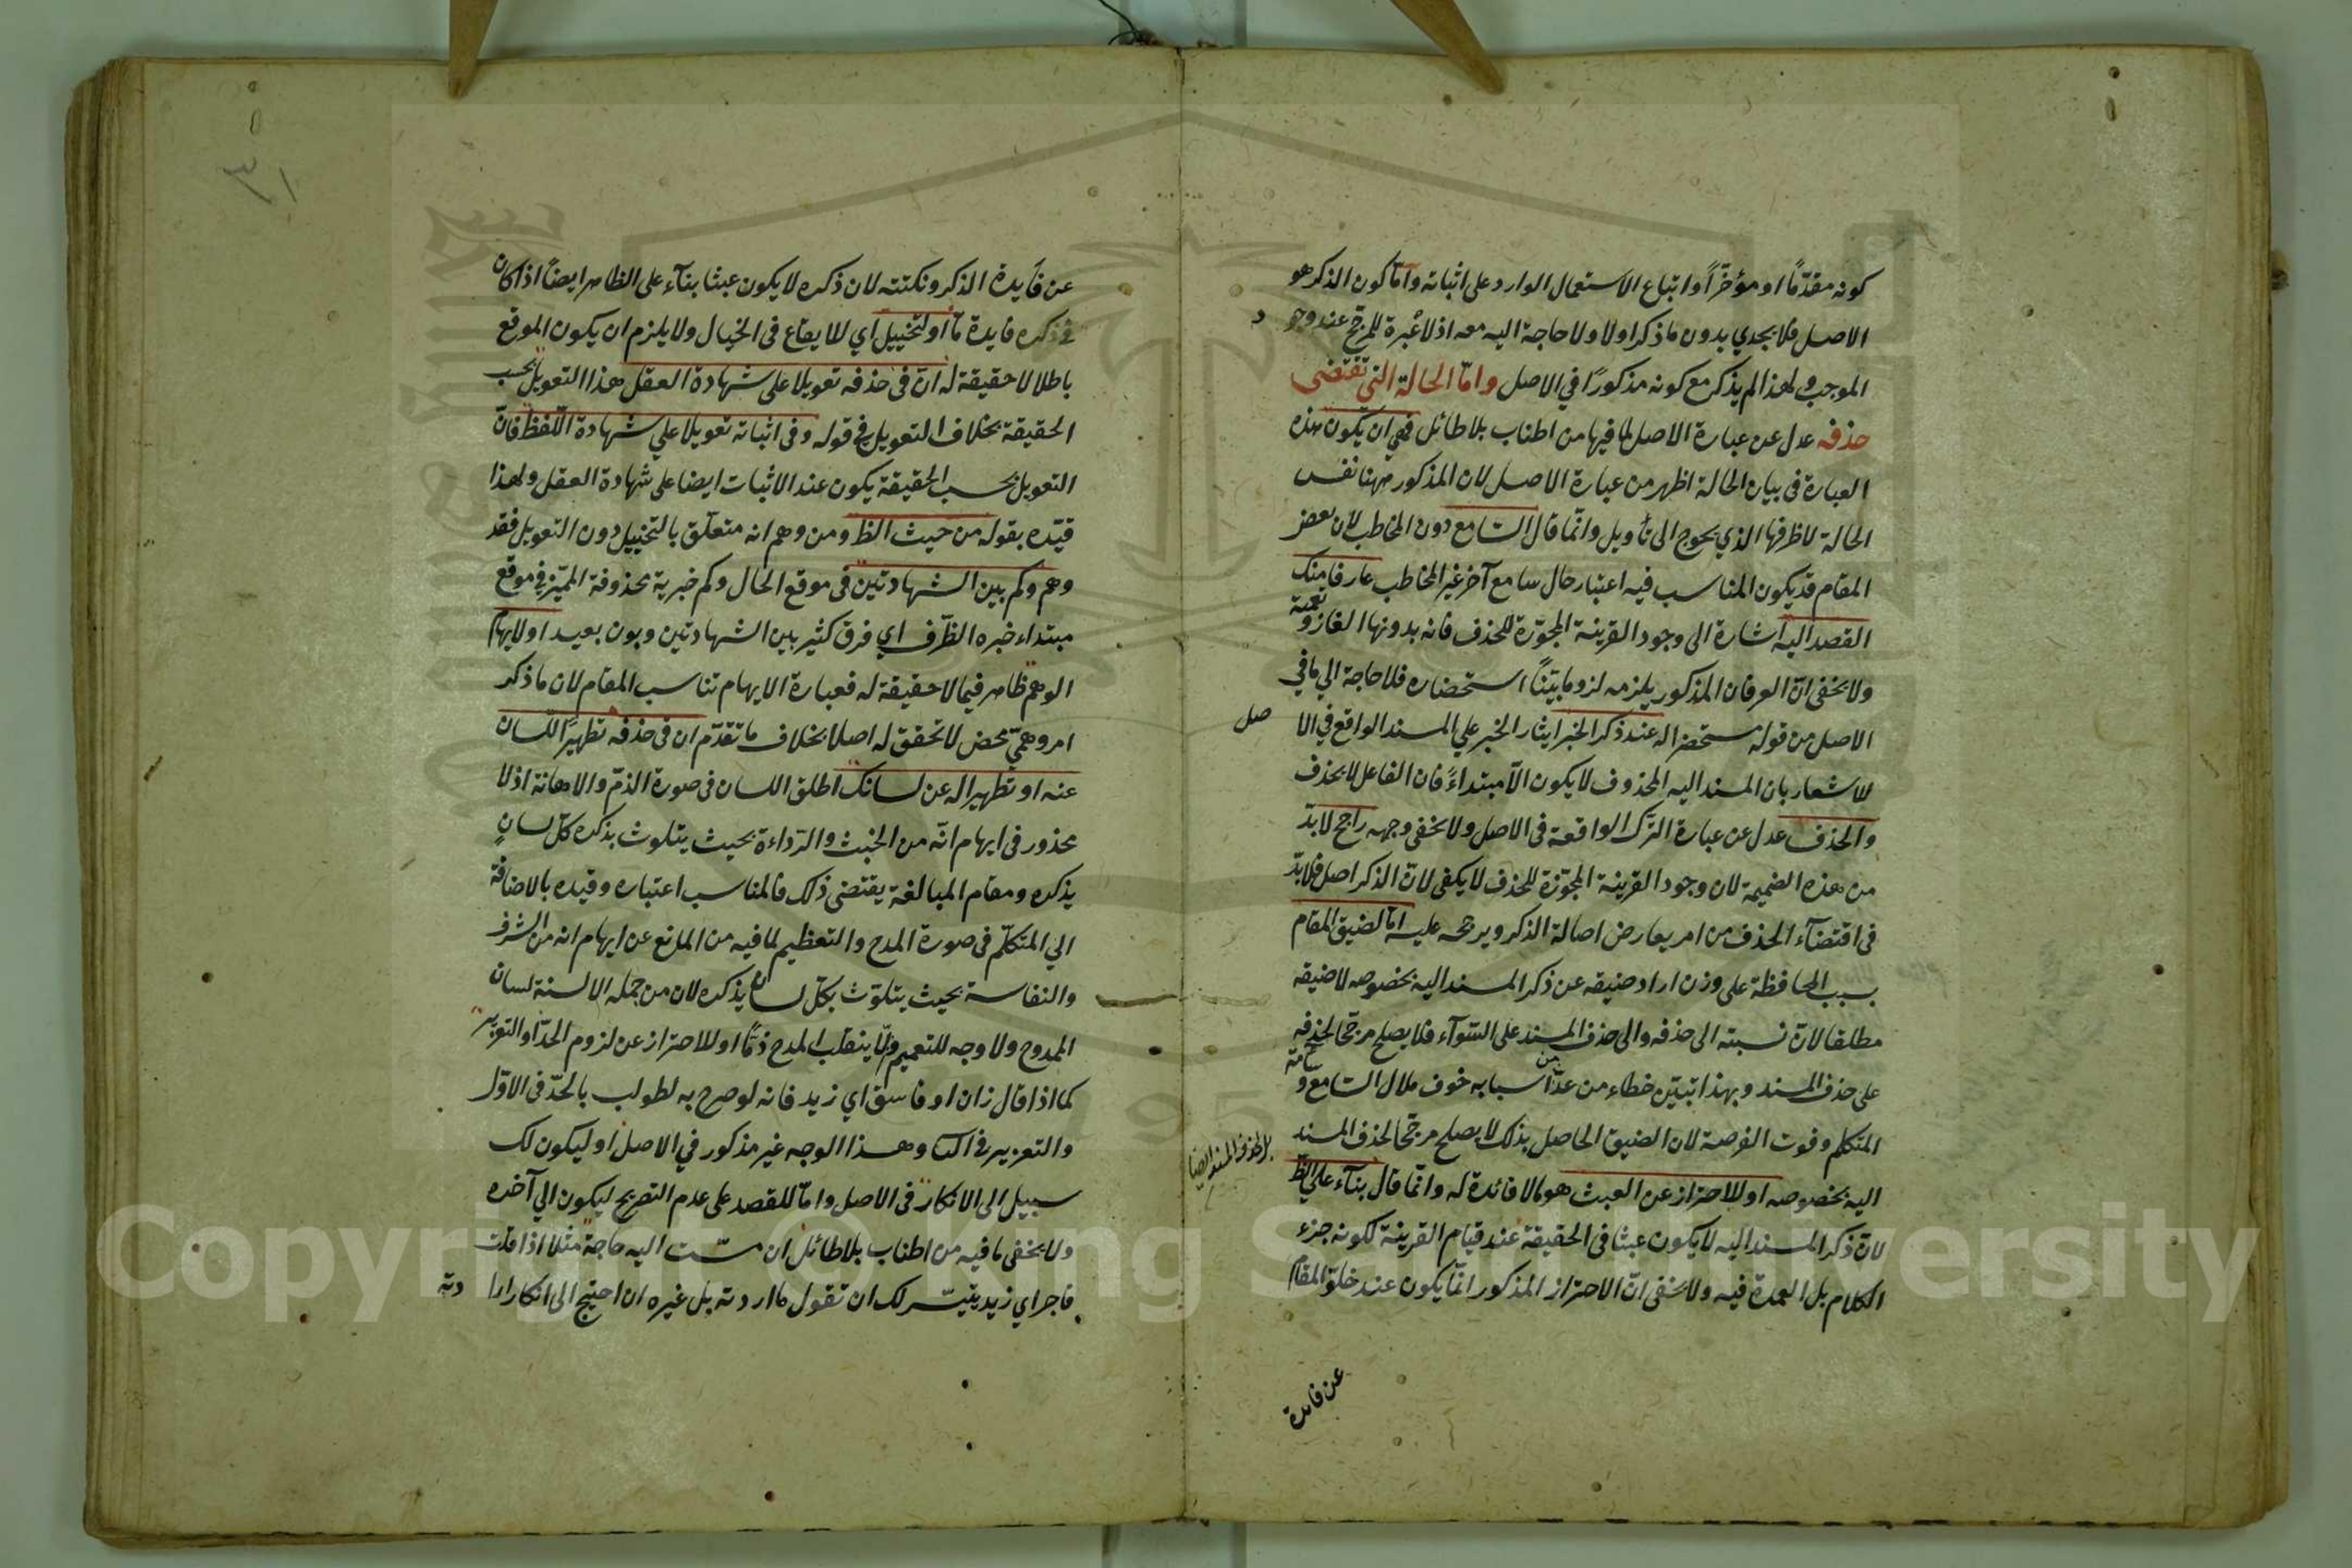 كونه مقدّماً او مؤخّراً واتباع الاستعمال الوارد على اثباته وامّا كون الذكر هو
الاصل فلا يجدي بدون ما ذكر اولا ولا حاجة اليه معه اذ لا عبرة للمرجّح عند وجو
د
الموجب ولهذا لم يذكر مع كونه مذكورًا في الاصل وامّا الحالة التي تقتضى
حذفه عدل عن عبارة الاصل لما فيها من اطناب بلا طائل فهي ان يكون هذه
العبارة فى بيان الحالة اظهر من عبارة الاصل لان المذكور ههنا نفس
الحالة لا ظرفها الذي يحوج الى تأويل وانّما قال السّامع دون المخاطب لان بعض
المقام قد يكون المناسب فيه اعتبار حال سامع آخر غير المخاطب عارفا منك
القصد اليه اشارة الى وجود القرينة المجوّزة للحذف فانه بدونها الغاز وتعمية
ولا يخفى انّ العرفان المذكور يلزمه لزوما بيّناً استحضاره فلا حاجة الي ما في
الاصل من قوله مستحضرا له عند ذكر الخبر ايثار الخبر علي المسند الواقع في الا
صل
للاشعار بان المسند اليه المحذوف لا يكون الاّ مبتداءً فان الفاعل لا يحذف
والحذف عدل عن عبارة الترك الواقعة فى الاصل ولا يخفى وجهه راجح لا بدّ
من هذه الضميمة لان وجود القرينة المجوّزة للحذف لا يكفى لانّ الذكر اصل فلا بدّ
فى اقتضآء الحذف من امر يعارض اصالة الذكر ويرجحه عليه امّا لضيق المقام
بسبب المحافظة على وزن اراد ضيقه عن ذكر المسند اليه بخصوصه لا ضيقه
مطلقا لانّ نسبته الى حذفه والى حذف المسند على السّوآء فلا يصلح مرجّحا لحذفه
على حذف المسند وبهذا تبيّن خطاء من عدّ من اسبابه خوف ملال السّامع وسآمة
المتكلم وفوت الفرصة لان الضيق الحاصل بذلك لا يصلح مرجّحا لحذف المسند
بل لحذف المسند ايضا
اليه بخصوصه او للاحتراز عن العبث هو ما لا فائدة له وانّما قال بنآء على الظّ
لانّ ذكر المسند اليه لا يكون عبثا فى الحقيقة عند قيام القرينة لكونه جزء
الكلام بل العمدة فيه ولا يخفى انّ الاحتراز المذكور انّما يكون عند خلوّ المقام
عن فايدة
عن فأيدة الذكر ونكتته لان ذكره لا يكون عبثا بنآء على الظاهر ايضاً اذا كان
فى ذكره فايدة مّا او لتخييل اي للايقاع فى الخيال ولا يلزم ان يكون الموقع
باطلا لا حقيقة له انّ فى حذفه تعويلا على شهادة العقل هذا التعويل بحسب
الحقيقة بخلاف التعويل فى قوله وفى اثباته تعويلا علي شهادة اللّفظ فانّ
التعويل بحسب الحقيقة يكون عند الاثبات ايضا على شهادة العقل ولهذا
قيّده بقوله من حيث الظ ومن وهم انه متعلّق بالتخييل دون التعويل فقد
وهم وكم بين الشهادتين فى موقع الحال وكم خبرية محذوفة المميّز فى موقع
مبتداء خبره الظّرف اي فرق كثير بين الشهادتين وبون بعيد او لايهام
الوهم ظاهر فيما لا حقيقة له فعبارة الايهام تناسب المقام لان ما ذكر
امر وهميّ محض لا تحقق له اصلا بخلاف ما تقدّم ان فى حذفه تطهيرًا للّسان
عنه او تطهيرا له عن لسانك اطلق اللسان فى صورة الذمّ والاهانة اذ لا
محذور فى ايهام انّه من الخبث والرّداءة بحيث يتلوث بذكره كلّ لسانٍ
يذكره ومقام المبالغة يقتضى ذلك فالمناسب اعتباره وقيده بالاضافة
الي المتكلّم فى صورة المدح والتعظيم لما فيه من المانع عن ايهام انه من الشرف
والنفاسة بحيث يتلوّث بكلّ لسان يذكره لان من جمله الالسنة لسان
الممدوح ولا وجه للتعميم والّا ينقلب المدح ذمًّا او للاحتراز عن لزوم الحدّ او التعزير
كما اذا قال زان او فاسق اي زيد فانه لو صرح به لطولب بالحدّ فى الاوّل
والتعزير فى الثا وهذا الوجه غير مذكور في الاصل او ليكون لك
سبيل الى الانكار فى الاصل وامّا للقصد على عدم التصريح ليكون الي آخره
ولا يخفى ما فيه من اطناب بلا طائل ان مسّت اليه حاجة مثلا اذا قلت
فاجر اي زيد يتيسّر لك ان تقول ما اردته بل غيره ان احتيج الى انكار ارا
دته